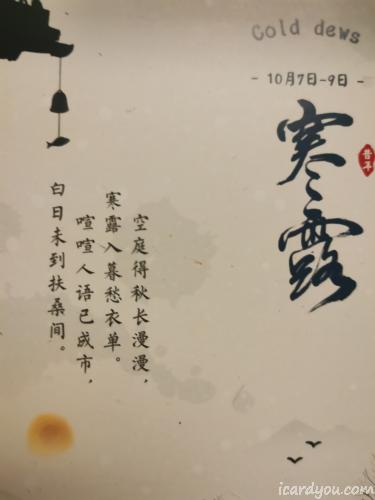 Cold dews
- 10月7日-9日 -
寒露
昔年
空庭得秋长漫漫，
寒露入暮愁衣单。
喧喧人语已成市，
白日未到扶桑间。
icardyou.com